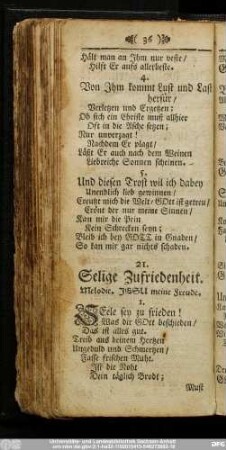 ❧ 36 ☙
Hält man an Ihm nur veste/
Hilft Er aufs allerbeste.
4.
Von Ihm kommt Lust und Last
herfür/
Verletzen und Ergetzen:
Ob sich ein Christe muß allhier
Oft in die Asche setzen;
Nur unverzagt!
Nachdem Er plagt/
Läßt Er auch nach dem Weinen
Liebreiche Sonnen scheinen.
5.
Und diesen Trost wil ich dabey
Unendlich lieb gewinnen/
Creutzt mich die Welt/ GOtt ist getreu/
Crönt der nur meine Sinnen/
Kan mir die Pein
Kein Schrecken seyn;
Bleib ich bey GOTT in Gnaden/
So kan mir gar nichts schaden.
21.
Selige Zufriedenheit.
Melodie. JESU meine Freude.
1.
SEele sey zu frieden!
Was dir GOtt beschieden/
Das ist alles gut.
Treib aus deinem Hertzen
Ungedult und Schmertzen/
Fasse frischen Muht.
Ist die Noht
Dein täglich Brodt;
Must